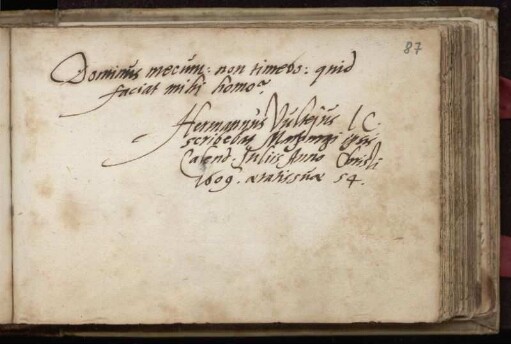 87
Dominus mecum: non timebo: quid
faciat mihi homo?
Hermannus Vulteius I C.
scribebat Marpurgi ipsis
Calend. Juliis Anno Christi
1609. ætatis suæ 54.